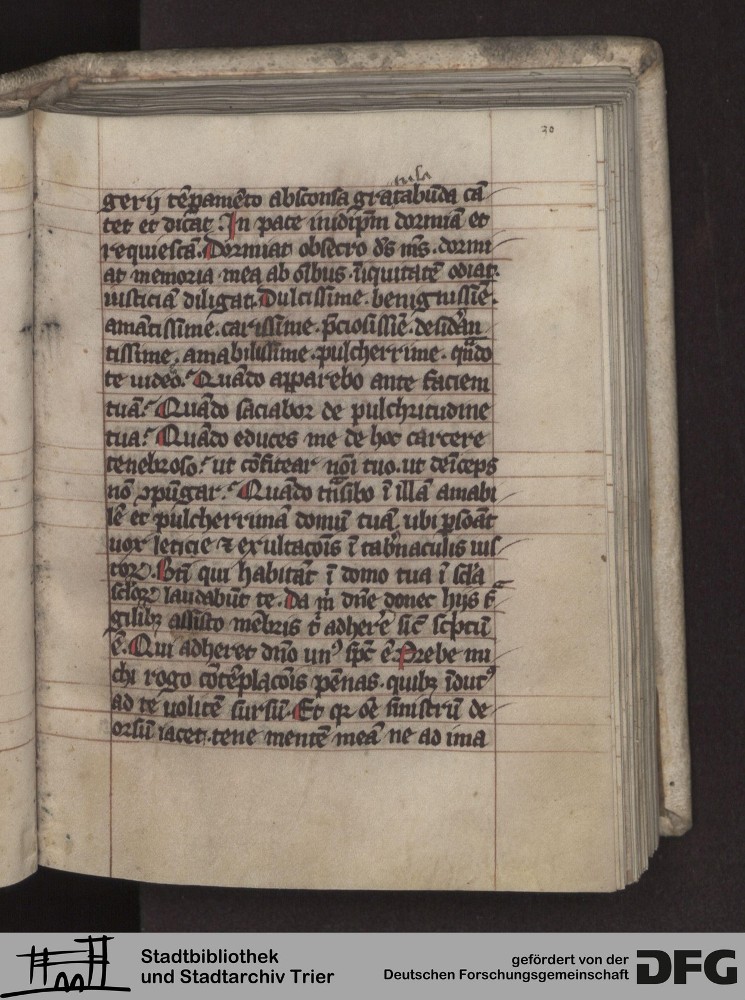 20
tula
gerij tēꝑamēto absconsa gratabūda cā
tet et dicat. In pace inidip̄m dormiā et
requiescā. Dormiat obsecro ds̄ ms̄. dormi
at memoria mea ab oībus īiquitatē odiat
iusticiā diligat. Dulcissime. benignissīe.
amātissime. carissime. p̄ciosissīe. desid'an
tissime. amabilissime. pulcherrime. qn̄do
te uideo. Quādo apparebo ante faciem
tuā. Quādo saciabor de pulchritudine
tua. Quādo educes me de hoc carcere
tenebroso. ut cōfitear noī tuo. ut deīceps
nō ꝯpūgar. Quādo tn̄sibo ī illā amabi
lē et pulcherrimā domū tuā. ubi ꝑsoāt
uox leticie ⁊ exultacōis ī tab'naculis ius
toꝝ. Bt̄i qui habitāt ī domo tua ī sc̄la
sc̄loꝝ laudabūt te. Da m̄ dn̄e donec hijs
gilibꝫ assisto mēbris t' adhere' sic̄ sc̄ptū
ē. Qui adheret dn̄o un' spc̄ ē. Prebe mi
chi rogo cōtēplacōis pēnas. quibꝫ īdut'
ad te uolitē sursū. Et qꝛ oē sinistrū de
orsū iacet. tene mentē meā ne ad ima
Stadtbibliothek
und Stadtarchiv Trier
gefördert von der
Deutschen Forschungsgemeinschaft
DFG